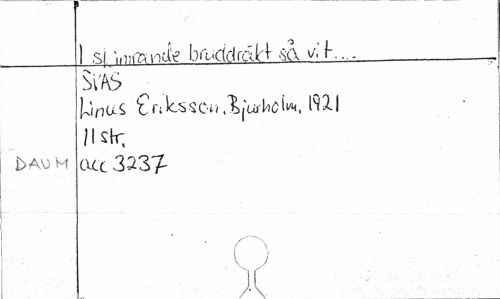 I skimrande bruddräkt så vit....
SVAS
Linus Eriksson, Bjurholm, 1921
11 str.
DAUM acc 3237